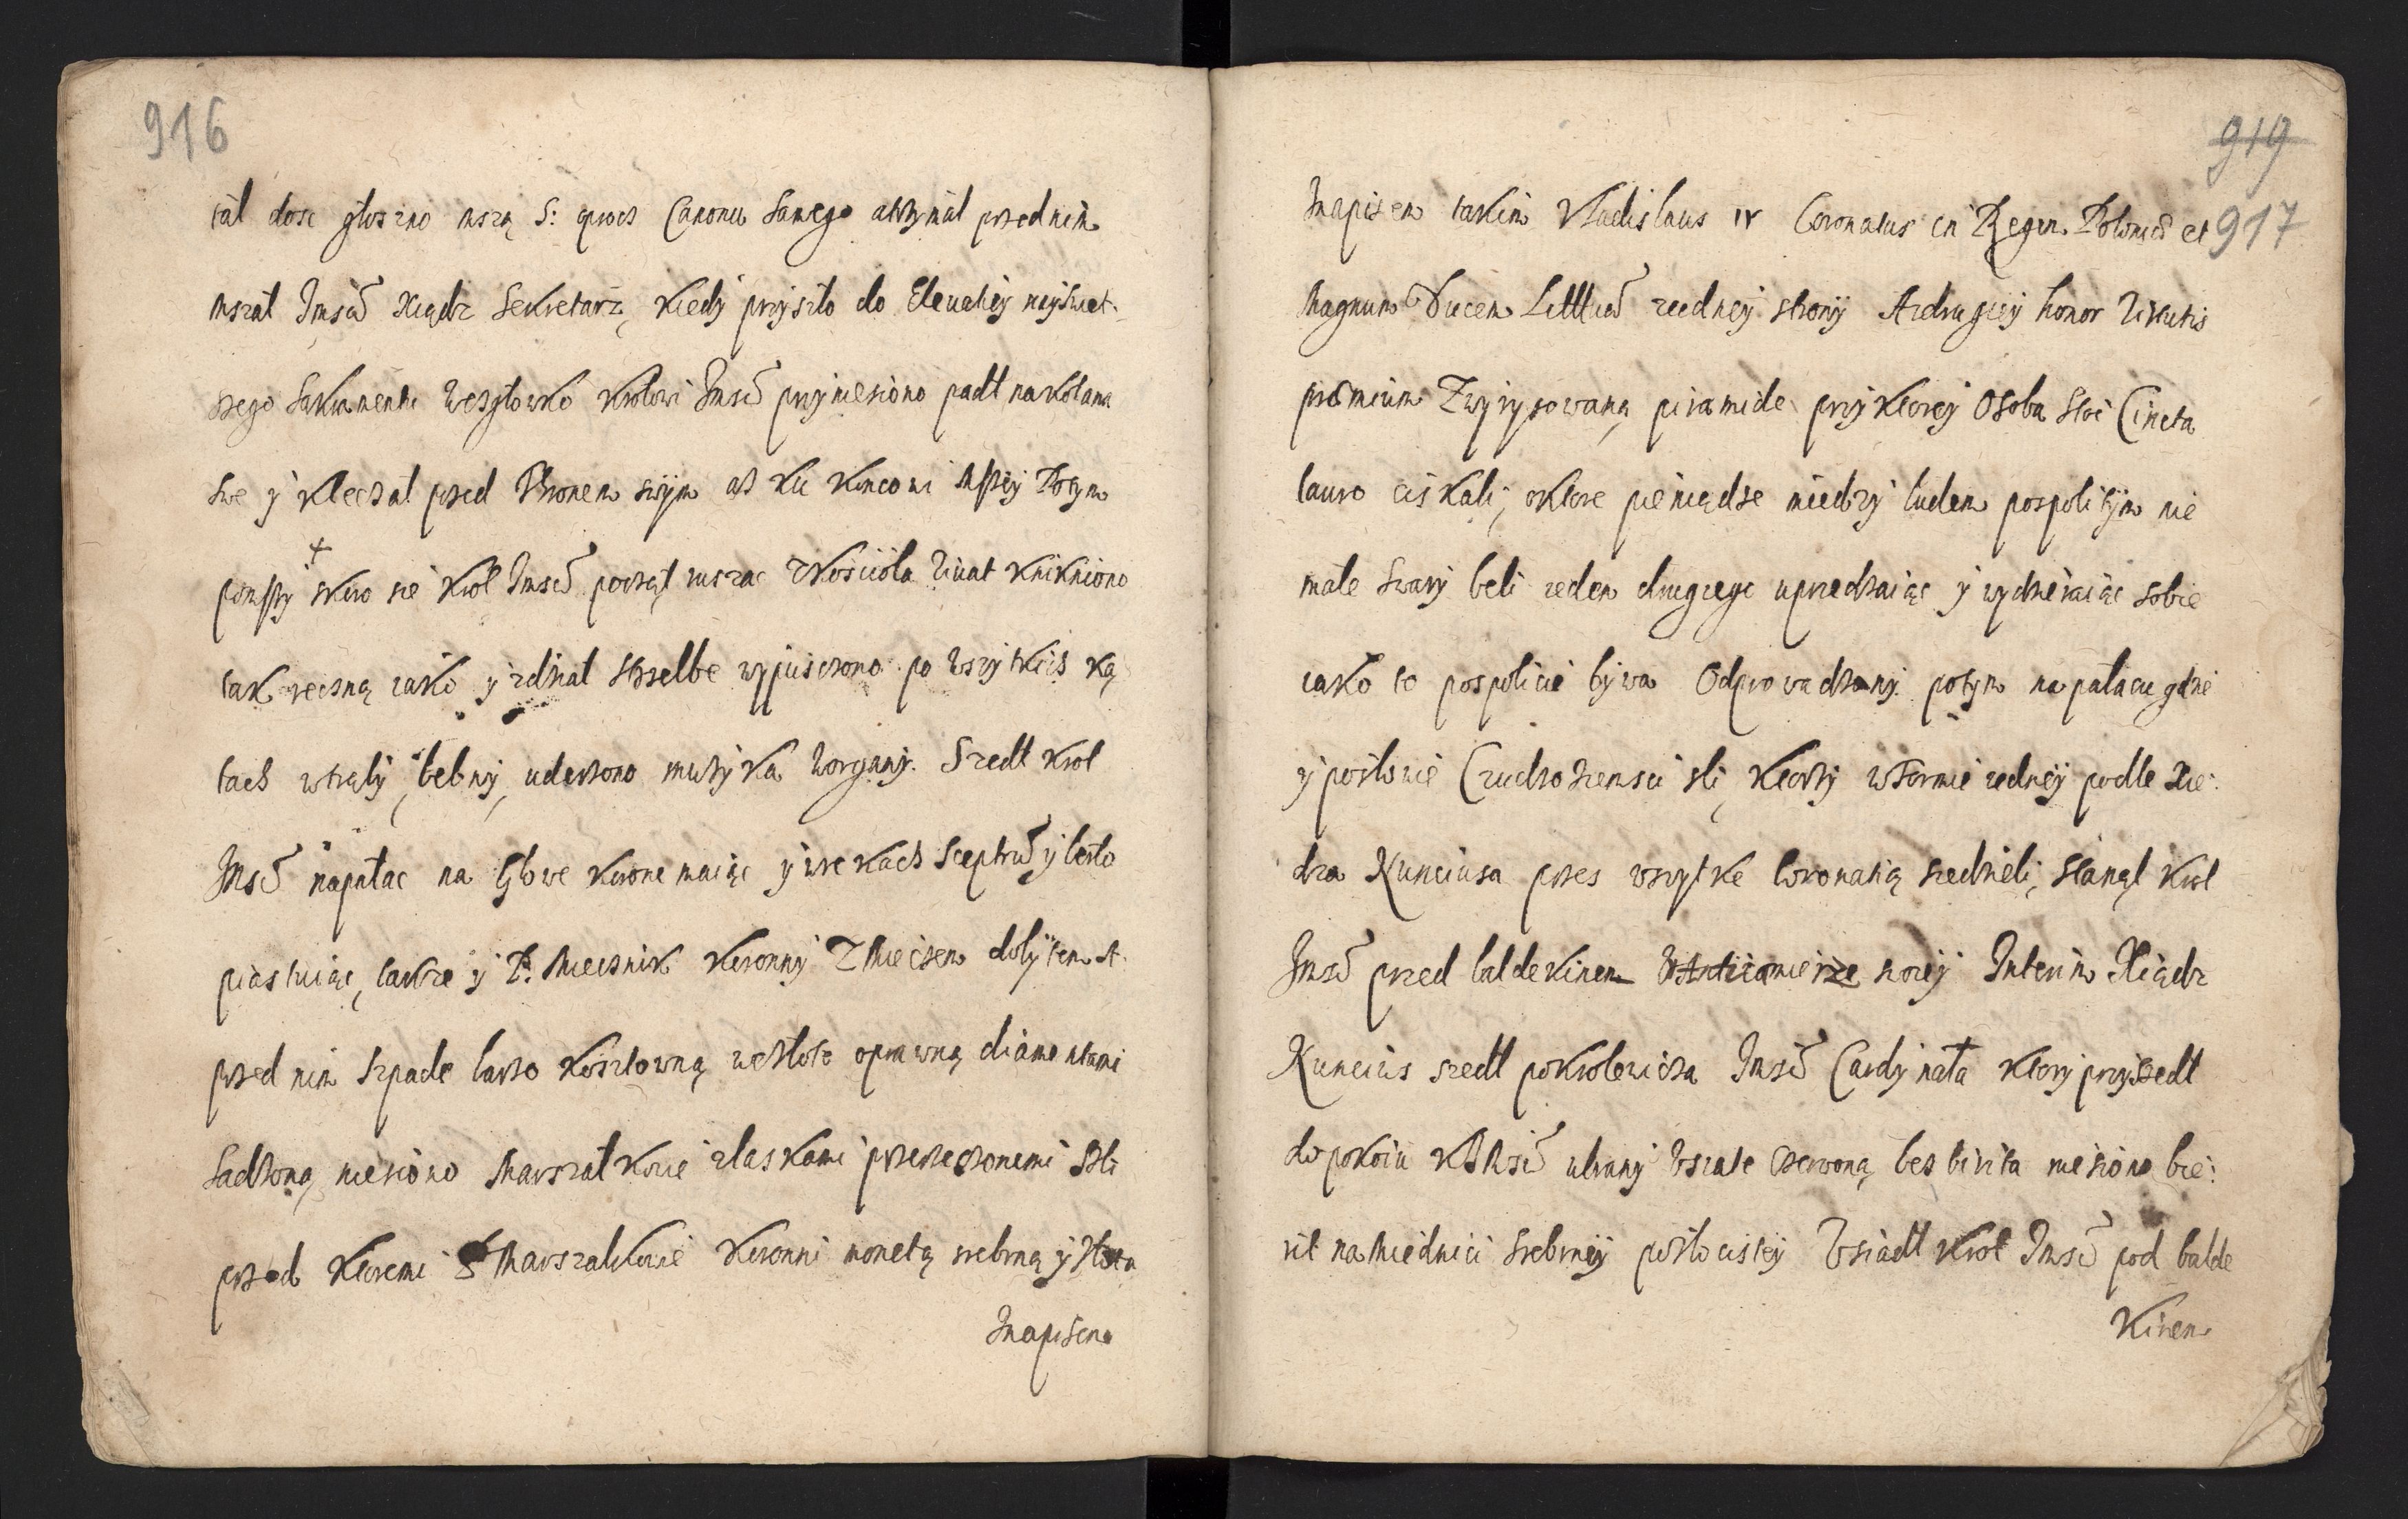 916
tał dosc głoszno mszą S: procs Canonu samego a trzymał przed nim
mszał Jmsċ Xiądz Sekretarz, kiedy przyszło do Elevatiey nayswet-
szego Sakramentu wezgłowko Krolowi Jmsċ przyniesiono padł na kolana
swe y kleczał przed Thronem swym asz ku koncowi mszey Potym
po mszy skoro sie Krol Jmsċ począł ruszac z koscioła Vivat kniknione
tak reczną iako y zdział strzelbe wypusczono po wszytkich ką
tach w trąby, bebny, uderzono muzyka w organy. Szedł krol
Jmsċ na pałac na głowe korone maiąc y w rekach Sceptrũ y berło
piastuiąc, takze y P. Miecznik Koronny z Mieczem dobytem A.
przed nim szpade barzo kosztowną we złoto oprawną diamentami
sadzoną, niesiono Marszałkowie z laskami przerzeczonemi szli
przed ktoremi Marszałkowie Koronni monetą srebrną y złotą
Znapisem
919
917
Znapisem takim Vladislaus IV Coronatus in Regem Poloniæ et
Magnum Ducem Littuæ z iedney strony A z drugiey honor Virtutis
præmium Z wyrysowaną piramide przy ktorey Osoba stoi Cincta
lauro ciskali, o ktore pieniądze miedzy ludem pospolitym nie
małe swary beli ieden drugiego uprzedzaiąc y wydzieraiąc sobie
iako to pospolicie bywa Odprowadzony potym na pałacu gdzie
y posłowie Cudzoziemsci szli, ktorzy w formie iedney podle Xie:
dza Nunciusa przes wszytke Coronatią siedzieli, stanął krol
Jmsċ przed baldekinem sworey Interim Xiądz
Nuncius szedł po Krolewicza Jmsċ Cardynała ktory przyszedł
do pokoiu KJMsċ ubrany w szate czerwoną, bes bireta niesiono bie:
ret na Miednici srebrney pozłocistey Usiadł Krol Jmsċ pod balde
kinem